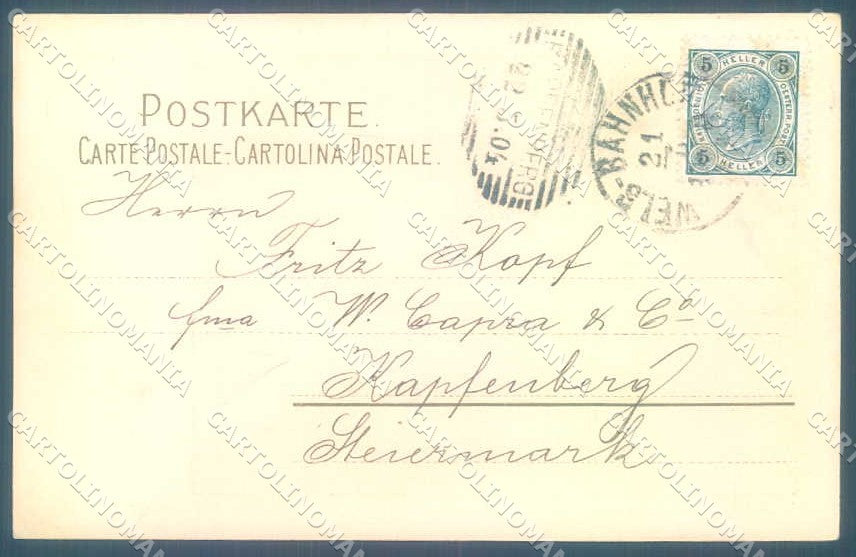 POSTKARTE.
CARTE POSTALE-CARTOLINA POSTALE.
Herrn
Fritz Kopf
fma W. Capra & Co
Kapfenberg
Steiermark
BAHNHOF
21
WELS
.04
5 HELLER 5
5 HELLER 5
CARTOLINOMANIA